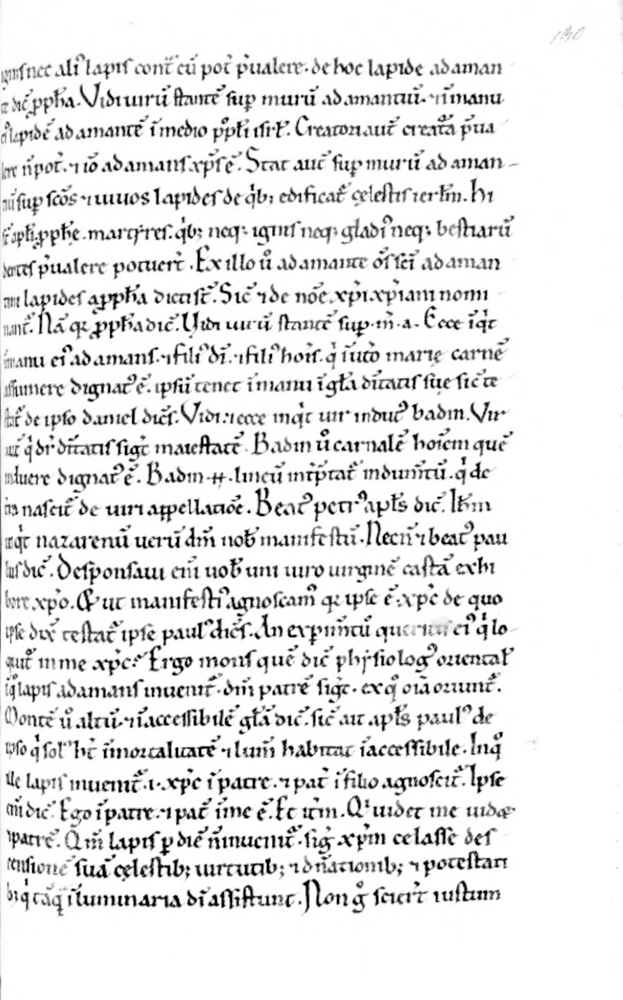 130
ignis nec ali᾽ lapis cont̄ eū pot̄ p̄ualere. de hoc lapide adaman
te dic̄ ꝓph̄a. Vidi uirū stantē sup̄ murū adamantinū. ⁊ ī manu
ei᾽ lapidē adamantē ī medio pp̄li isrl̄. Creatorī aut̄ creata p̄ua
lere n̄ pot̄. ⁊ iō adamans xp̄s ē. Stat aut̄ sup murū adaman
tinū sup sc̄os ⁊ uiuos lapides de qͥb; edificat̄ cęlestis ierl̄m. Hi
st̄ apl̄i. ꝓph̄e. martyres. qͥb; neq; ignis neq; gladi᾽ neq; bestiarū
dentes p̄ualere potuer̄t. Ex illo ū adamante om̄s sc̄i adaman
tini lapides a ꝓph̄a dicti st̄. Sic̄ ⁊ de noīe xp̄i xp̄iani nomi
nant̄. Nā qͥ ꝓph̄a dic̄. Vidi uirū stantē sup. m̄. a. Ecce īqͥt
ī manu ei᾽ adamans. ⁊ fili᾽ dī. ⁊ fili᾽ hoīs. qͥ ī utō marię carnē
assumere dignat᾽ ē. ipsū tenet ī manu ī gl̄a dītatis suę sic̄ te
stat̄ de ipso daniel dic̄s. Vidi. ⁊ ecce inqͥt uir indut᾽ badin. Vir
aut̄ qͥ dr̄ dītatis sigt̄ maiestatē. Badin ū carnalē hoīem quē
induere dignat᾽ ē. Badin .n̄. lineū int̄ptat̄ indumtū. qͥ de
t̄ra nascit̄ de uiri appellatiōe. Beat᾽ petr᾽ apl̄s dic̄. Ih̄m
inqͥt nazarenū uerū dm̄ nob̄ manifestū. Necn̄ ⁊ beat᾽ pau
lus dic̄. Desponsaui eī uob̄ uni uiro uirginē castā exhi
bere xp̄o. Et ut manifesti᾽ agnoscam᾽ qͥ ipse ē xp̄c de quo
ipse dix̄ testat̄ ipse paul᾽ dic̄s. An expim̄tū queritis ei᾽ qͥ lo
quit̄ in me xp̄c. Ergo mons quē dic̄ physiolog᾽ oriental̄
ī qͦ lapis adamans inuenit̄. dm̄ patrē sigt̄. ex qͦ oīa oriunt̄.
Montē ū altū. ⁊ īaccessibilē gl̄a dic̄. sic̄ ait apl̄s paul᾽ de
ipso qͥ sol᾽ ht̄ īmortalitatē ⁊ lum̄ habitat īaccessibile. In qͦ
ille lapis inuenit̄. i. xp̄c ī patre. ⁊ pat̄ ī filio agnoscit̄. Ipse
eī dic̄. Ego ī patre. ⁊ pat̄ ī me ē. Et it̄m. Qͥ uidet me uidet
⁊ patrē. Qm̄ lapis p diē n̄ inuenit̄. siḡ xp̄m celasse des
censionē suā cęlestib; uirtutib; ⁊ dn̄ationib; ⁊ potestati
b; qͥ tāq̄ luminaria dī assistunt. Non g̊ scier̄t iustum